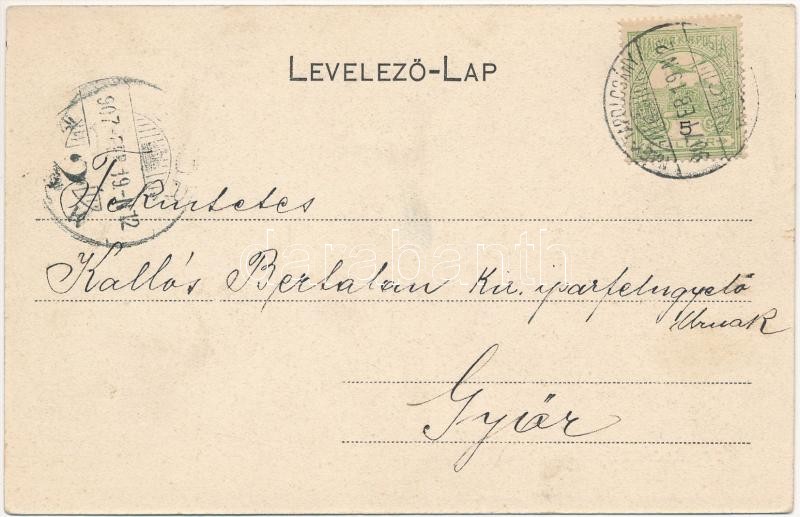 LEVELEZŐ-LAP
MAGYAR KIR. POSTA
5
907
Tekintetes
Kallós Bertalan Kir. iparfelügyelő
Urnak
Győr
darabanth